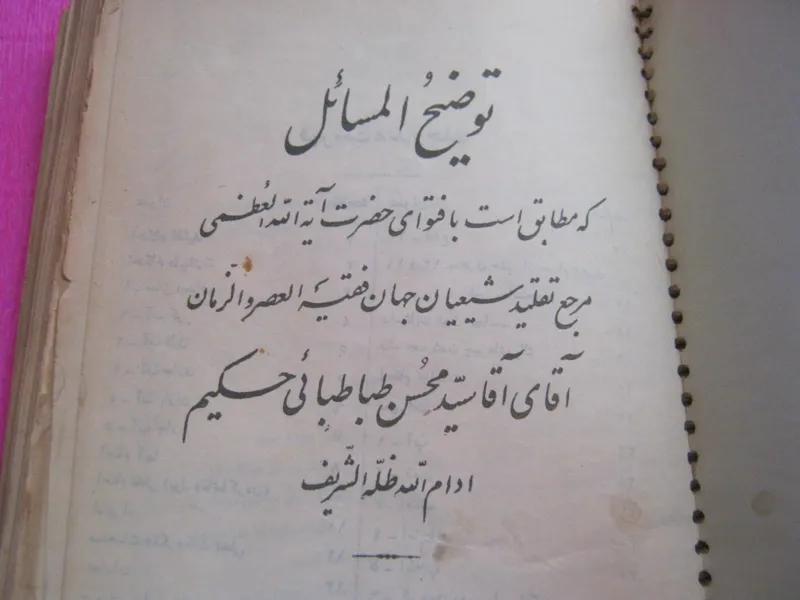 توضیحُ المسائل
که مطابق است با فتوای حضرت آیة اللّه العُظمی
مرجع تقلید شیعیان جهان فقیه العصر والزّمان
آقای آقا سیّد محسُن طباطبائی حکیم
ادام اللّه ظلّه الشّریف